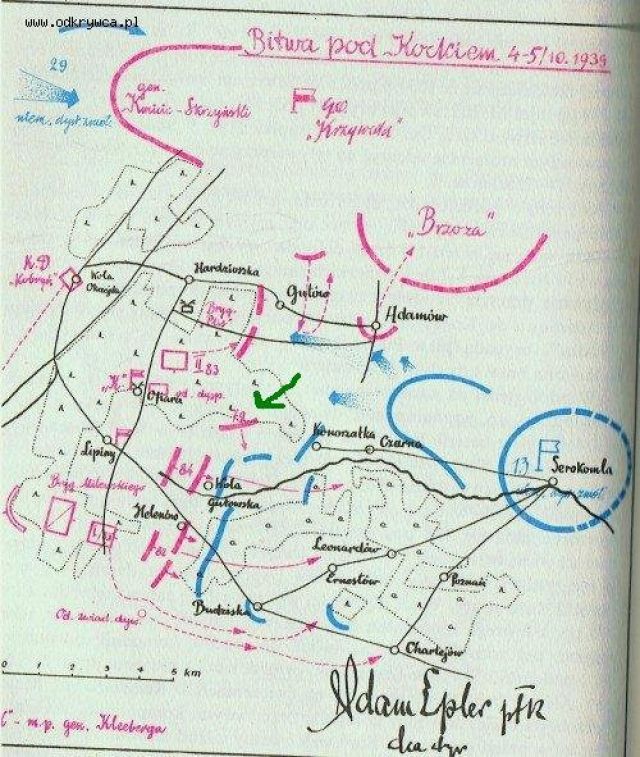 www.odkrywca.pl
Bitwa pod Kockiem 4-5/10.1939
29
niem. dyw. zmot.
gen.
Kmicic-Skrzyński
Go.
"Krzywda"
"Brzoza"
K.D
"Kobryń"
Kola.
Okrzejska
Hordzieszka
Gutów
Adamów
Bryg.
II 83
"K"
od. dysp.
Ofiara
Konorzatka
Czarna
13
Serokomla
Lipiny
84
Wola
Gułowska
Bryg.
Helenów
82
Leonardów
Ernestów
Poznań
Budziska
Od. zwiad. dyw.
Charlejów
0 1 2 3 4 5 km
Adam Epler płk
dca dyw
"K" - m.p. gen. Kleeberga